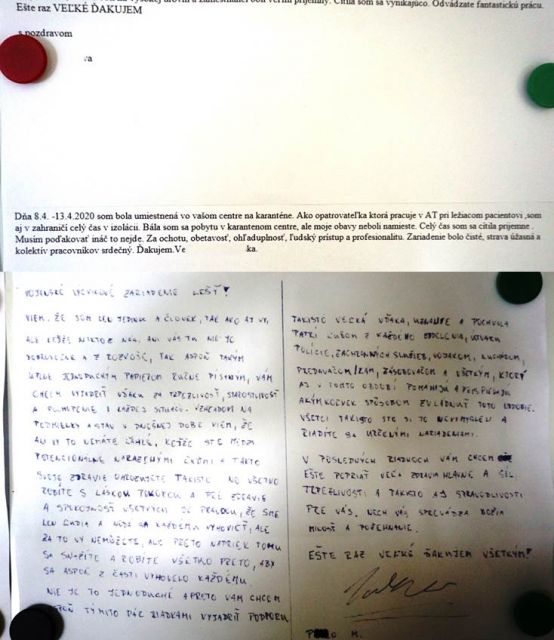 Ešte raz VEĽKÉ ĎAKUJEM
s pozdravom
Dňa 8.4. -13.4.2020 som bola umiestnená vo vašom centre na karanténe. Ako opatrovateľka ktorá pracuje v AT pri ležiacom pacientovi ,som
aj v zahraničí celý čas v izolácii. Bála som sa pobytu v karantenom centre, ale moje obavy neboli namieste. Celý čas som sa cítila príjemne .
Musím poďakovať ináč to nejde. Za ochotu, obetavosť, ohľaduplnosť, ľudský prístup a profesionalitu. Zariadenie bolo čisté, strava úžasná a
kolektív pracovníkov srdečný. Ďakujem.Ve ka.
VOJENSKÉ VÝCVIKOVÉ ZARIADENIE LEŠŤ!
VIEM, ŽE SOM LEN JEDINEC A ČLOVEK, TAK AKO AJ VY,
ALE KEĎŽE NIKTO Z NÁS, ANI VÁS TU NIE JE
DOBROVOĽNE A Z ROZKOŠE, TAK ASPOŇ TAKÝM
JEDNODUCHÝM PAPIEROM RUČNE PÍSANÝM, VÁM
CHCEM VYJADRIŤ VĎAKU ZA TRPEZLIVOSŤ, STAROSTLIVOSŤ
A V KAŽDEJ SITUÁCII. VZHĽADOM NA
PODMIENKY A STAV V DNEŠNEJ DOBE VIEM, ŽE
ANI VY TO NEMÁTE ĽAHKÉ, KEĎŽE STE MEDZI
POTENCIONÁLNE NAKAZENÝMI ĽUĎMI A TAKTO
SVOJE ZDRAVIE OHROZUJETE TAKISTO. NO VŠETKO
ROBÍTE S LÁSKOU, POKOROU A PRE ZDRAVIE
A SPOKOJNOSŤ VŠETKÝCH. JE PRAVDOU, ŽE SME
LEN ĽUDIA A NEDÁ SA KAŽDÉMU VYHOVIEŤ, ALE
ZA TO VY NEMÔŽETE, ALE PRETO NAPRIEK TOMU
SA SNAŽÍTE A ROBÍTE VŠETKO PRETO, ABY
SA ASPOŇ Z ČASTI VYHOVELO KAŽDÉMU.
NIE JE TO JEDNODUCHÉ A PRETO VÁM CHCEM
ASPOŇ TÝMITO PÁR RIADKAMI VYJADRIŤ PODPORU
TAKISTO VEĽKÁ VĎAKA, UZNANIE A POCHVALA
PATRÍ ĽUĎOM Z KAŽDÉHO ODVETVIA,
POLÍCIE, ZÁCHRANNÝCH SLUŽIEB, VOJAKOM, KUCHÁROM,
PREDAVAČOM/KÁM, ZÁSOBOVAČOM A VŠETKÝM, KTORÝ
AJ V TOMTO OBDOBÍ POMÁHAJÚ A PRISPIEVAJÚ
AKÝMKOĽVEK SPÔSOBOM ZVLÁDNUŤ TOTO OBDOBIE.
VŠETCI TAKISTO STE SI TO NEVYMYSLELI A
RIADITE SA URČENÝMI NARIADENIAMI.
V POSLEDNÝCH RIADKOCH VÁM CHCEM
EŠTE POPRIAŤ VEĽA ZDRAVIA HLAVNE A SÍL
TRPEZLIVOSTI A TAKISTO AJ SPRAVODLIVOSTI
PRE VÁS. NECH VÁS SPREVÁDZA BOŽIA
MILOSŤ A POŽEHNANIE.
EŠTE RAZ VEĽKÉ ĎAKUJEM VŠETKÝM!